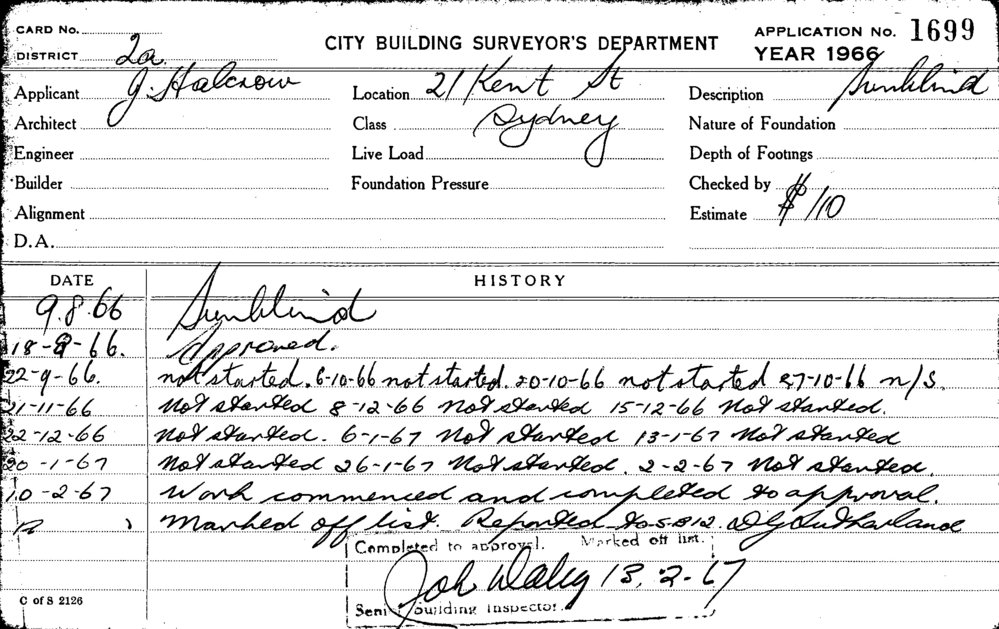 CARD No.
DISTRICT 2a
CITY BUILDING SURVEYOR'S DEPARTMENT
APPLICATION No. 1699
YEAR 1966
Applicant J. Halcrow
Location 21 Kent St
Description Sunblind
Architect
Class Sydney
Nature of Foundation
Engineer
Live Load
Depth of Footings
Builder
Foundation Pressure
Checked by
Alignment
Estimate $/10
D.A.
DATE HISTORY
9.8.66 Sunblind
18-8-66. Approved.
22-9-66. not started. 6-10-66 not started. 20-10-66 not started 27-10-66 n/s.
21-11-66 Not started 8-12-66 Not started 15-12-66 Not started.
22-12-66 Not started. 6-1-67 Not started 13-1-67 Not started
20-1-67 Not started 26-1-67 Not started. 2-2-67 Not started.
10-2-67 Work commenced and completed to approval.
Marked off list. Reported to S.B.12. D G Sutherland
Completed to approval. Marked off list.
13.2-67
Senior Building Inspector.
C of S 2126